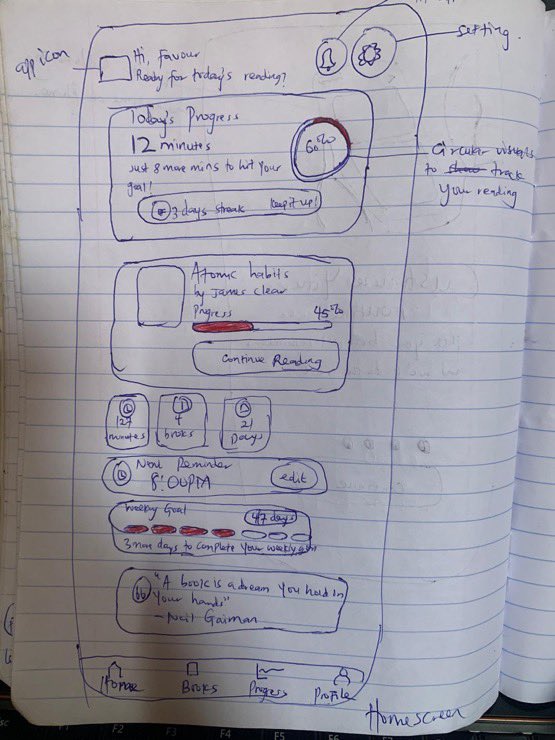 app icon
Hi, Favour
Ready for today's reading?
setting.
Today's Progress
12 minutes
Just 8 more mins to hit your
goal!
60%
3 days streak
keep it up!
Circular visuals
to show track
your reading
Atomic habits
by James Clear
Progress
45%
Continue Reading
127
minutes
4
books
21
Days
Next Reminder
8:00PM
edit
Weekly Goal
4/7 days
3 more days to complete your weekly
"A book is a dream you hold in
your hands"
- Neil Gaiman
Home
Books
Progress
Profile
Homescreen
F2
F3
F4
F5